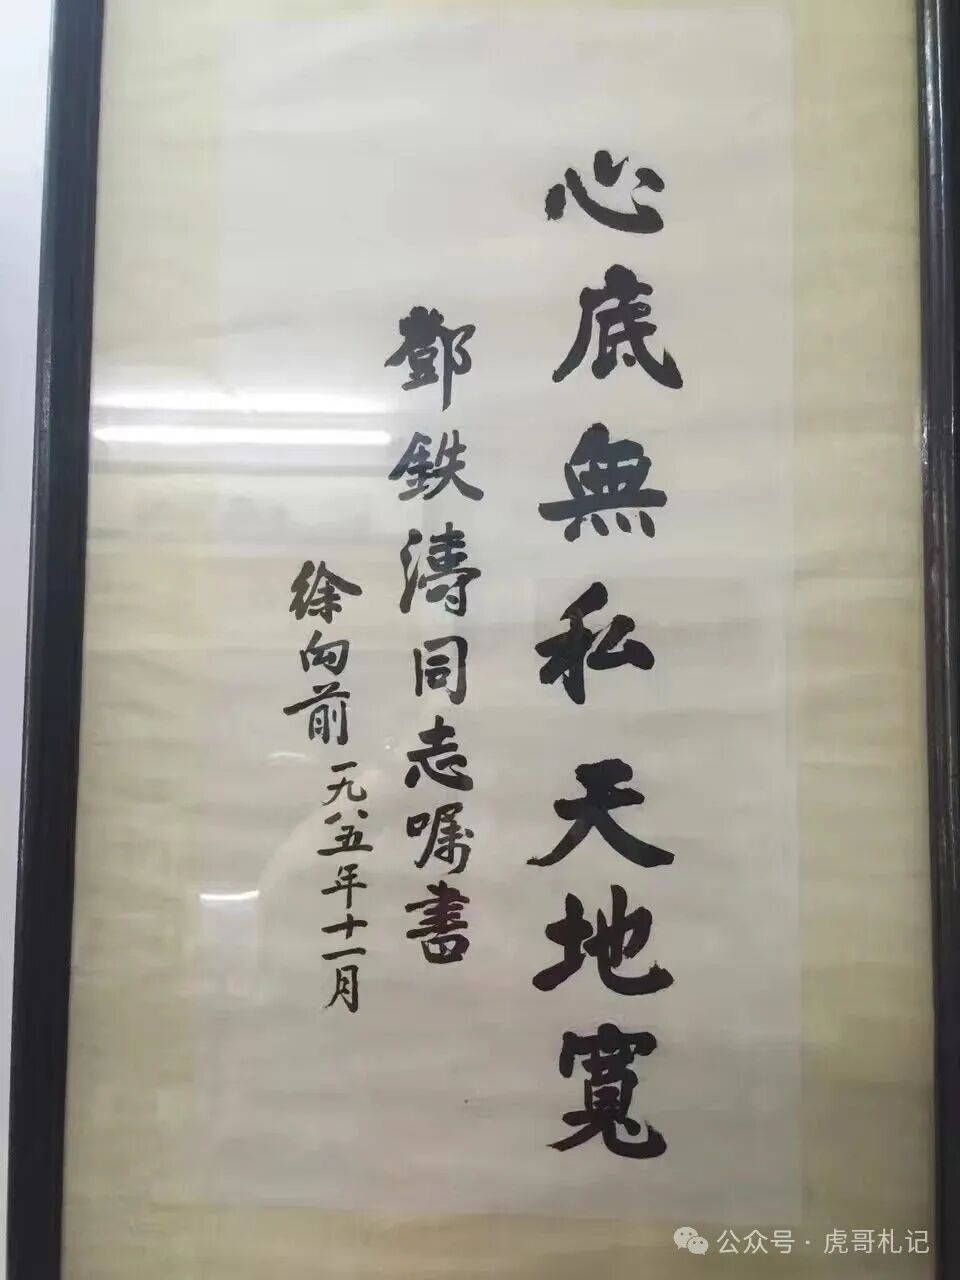 心底無私天地寬
鄧鉄濤同志嘱書
徐向前一九八五年十一月
公众号·虎哥札记